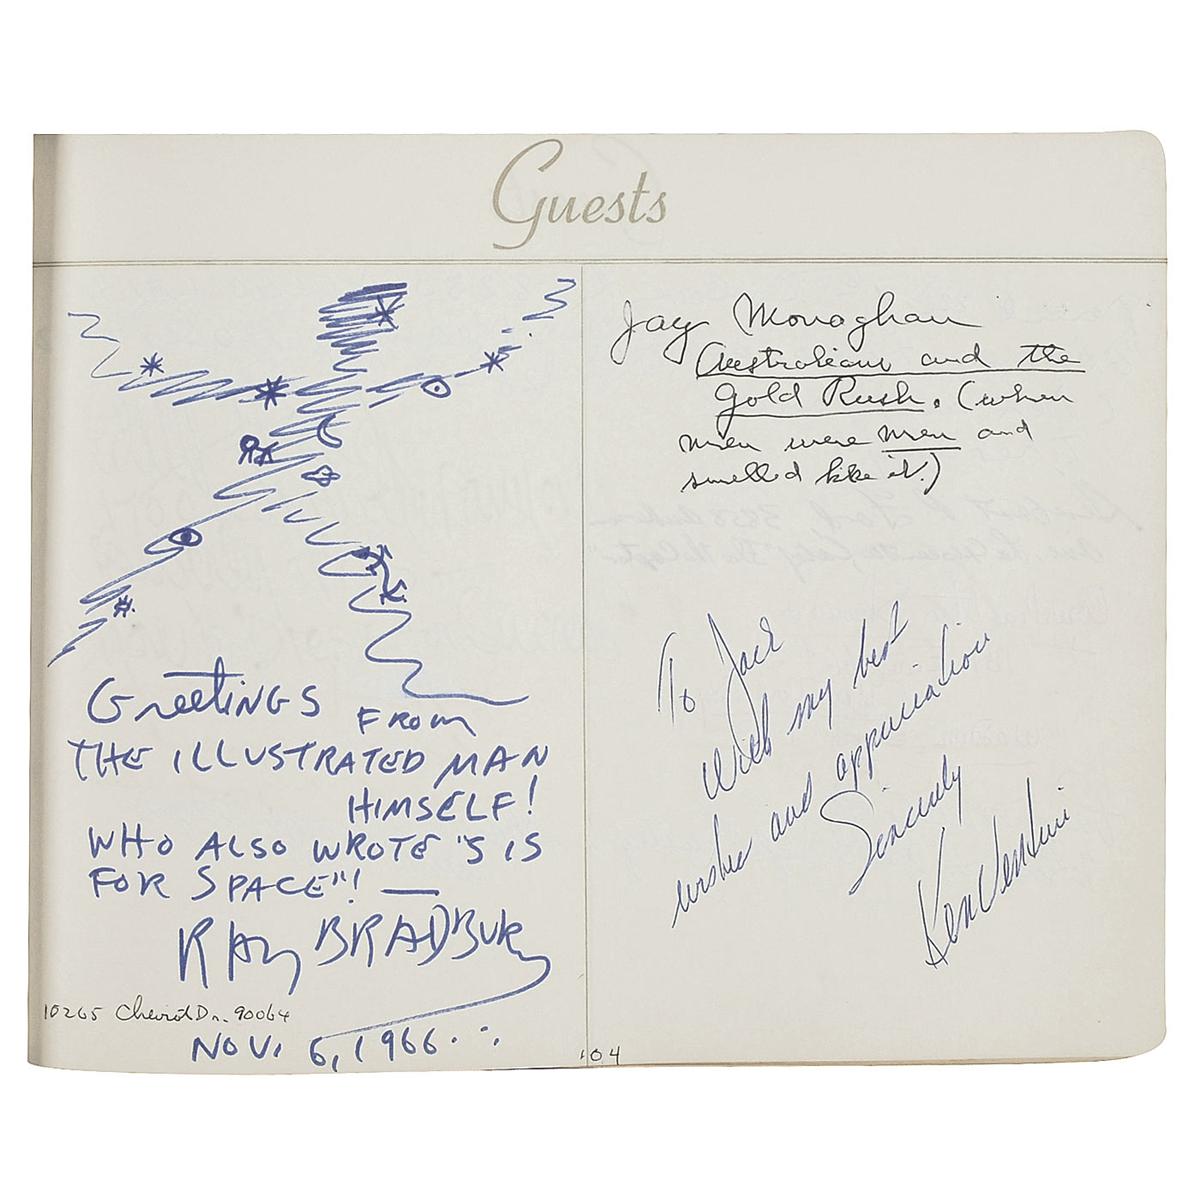 Guests
Greetings from
THE ILLUSTRATED MAN
HIMSELF!
WHO ALSO WROTE "S IS
FOR SPACE"! —
RAY BRADBURY
10265 Cheviot Dr. 90064
NOV. 6, 1966
Jay Monaghan
Australians and the
Gold Rush. (when
men were men and
smelled like it.)
To Jack
With my best
wishes and appreciation
Sincerely
Ken Venturi
104